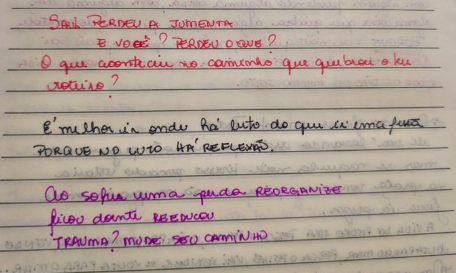 SAUL PERDEU A JUMENTA
E VOCÊ? PERDEU O QUE?
O que aconteceu no caminho que quebrou o seu
roteiro?
É melhor ir onde há luto do que ir em a festa
PORQUE NO LUTO HÁ REFLEXÃO.
Ao sofrer uma perda REORGANIZE
ficou doente REEDUCOU
TRAUMA? MUDE SEU CAMINHO